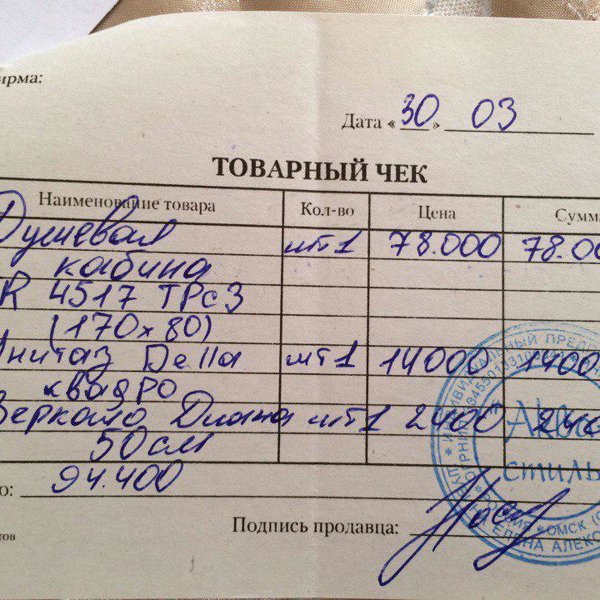 ирма:
Дата «30» 03
ТОВАРНЫЙ ЧЕК
Наименование товара Кол-во Цена Сумма
Душевая шт 1 78.000 78.00
кабина
R 4517 TPc3
(170x80)
Унитаз Della шт 1 14000 1400
квадро
Зеркало Диана шт 1 2400 240
50см
о: 94.400
Подпись продавца:
тов
Аква
стиль
ОМСК
ЕЛЕНА АЛЕКС